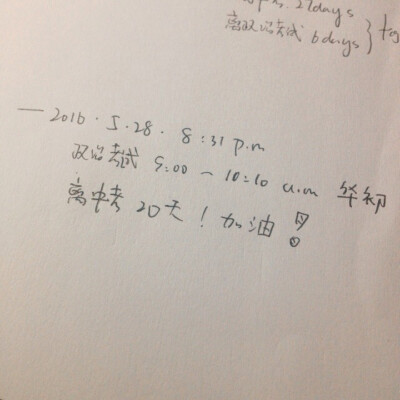 27days
离政治考试 6days
— 2016.5.28. 8:31 p.m
政治考试 9:00 — 10:10 a.m 华初
离中考 20天！加油！